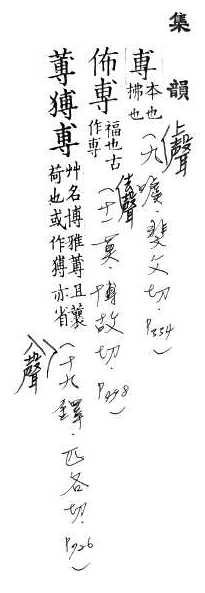 集韻
尃 本也拂也 上聲（九噳．斐父切．P334）
佈尃 福也古作尃 去聲（十一莫．博故切．P498）
蒪猼尃 艸名博雅蒪苴蘘荷也或作猼亦省 入聲（十九鐸．匹各切．P726）